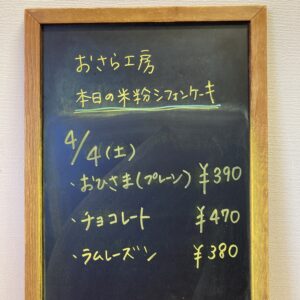 おさら工房
本日の米粉シフォンケーキ
4/4(土)
・おひさま(プレーン) ¥390
・チョコレート ¥470
・ラムレーズン ¥380